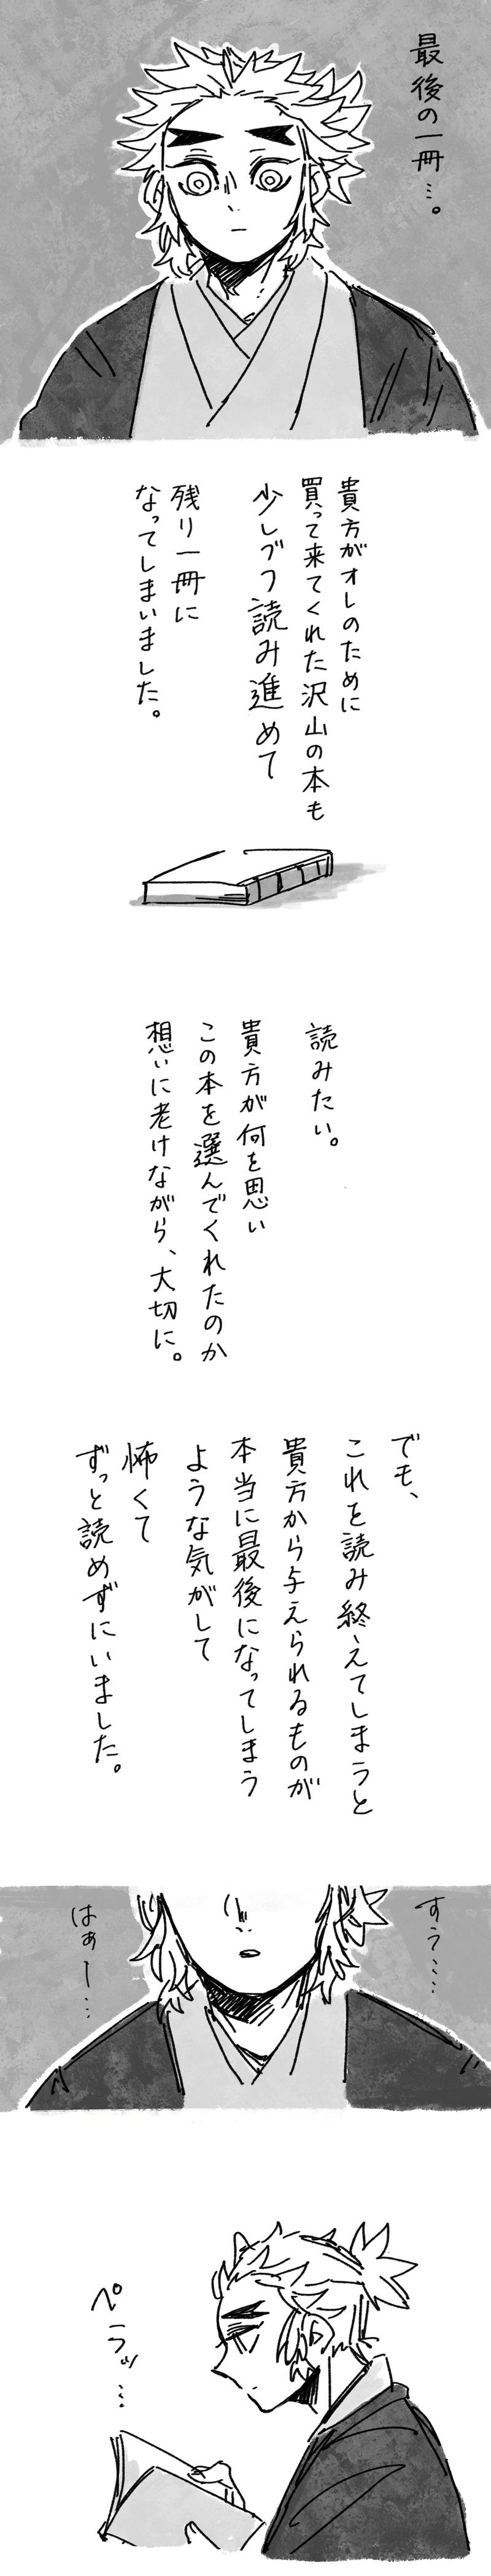 最後の一冊…。
貴方がオレのために
買って来てくれた沢山の本も
少しづつ読み進めて
残り一冊に
なってしまいました。
読みたい。
貴方が何を思い
この本を選んでくれたのか
想いに老けながら、大切に。
でも、
これを読み終えてしまうと
貴方から与えられるものが
本当に最後になってしまう
ような気がして
怖くて
ずっと読めずにいました。
すぅ……
はぁー…
ペラッ…